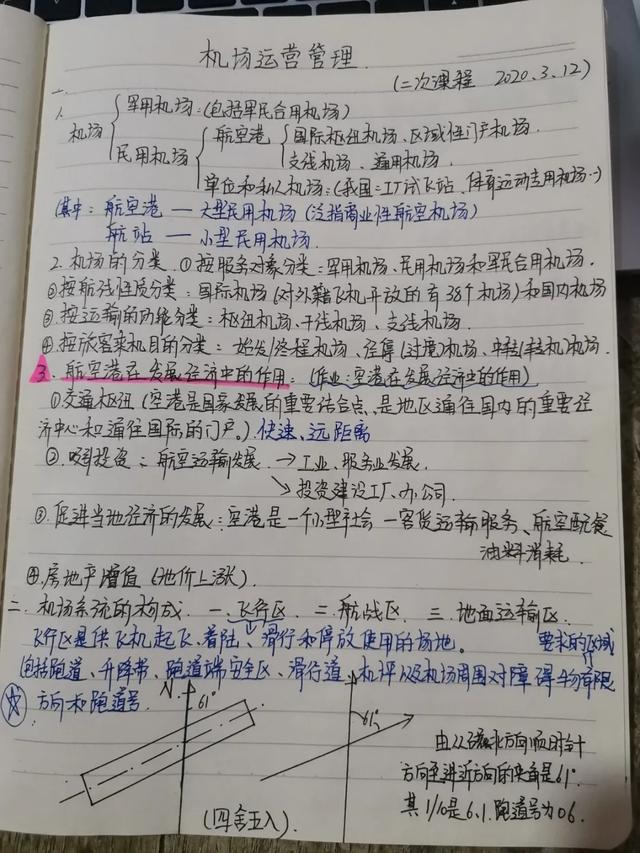 机场运营管理.
(二次课程 2020.3.12)
一.
1. 机场 军用机场:(包括军民合用机场)
民用机场 航空港 国际枢纽机场、区域性门户机场.
支线机场、通用机场.
单位和私人机场:(我国:工厂试飞站、体育运动专用机场..)
(其中: 航空港 — 大型民用机场 (泛指商业性航空机场)
航站 — 小型民用机场.
2. 机场的分类. ①按服务对象分类: 军用机场、民用机场和军民合用机场.
②按航线性质分类: 国际机场(对外籍飞机开放的有38个机场)和国内机场
③按运输的功能分类: 枢纽机场、干线机场、支线机场.
④按旅客乘机目的分类: 始发/终程机场、经停(过境)机场、中转(转机)机场.
3. 航空港在发展经济中的作用. (作业:空港在发展经济中的作用)
①交通枢纽(空港是国家发展的重要结合点、是地区通往国内的重要经
济中心和通往国际的门户.) 快速、远距离
②. 吸引投资: 航空运输发展. → 工业、服务业发展.
↘ 投资建设工厂、办公司.
③. 促进当地经济的发展: 空港是一个小型社会 — 客货运输服务、航空配餐
油料消耗.
④. 房地产增值 (地价上涨).
二. 机场系统的构成. 一、飞行区. 二. 航战区. 三. 地面运输区.
飞行区是供飞机起飞、着陆、滑行和停放使用的场地。 要求的区域
包括跑道、升降带、跑道端安全区、滑行道、机坪以及机场周围对障碍物有限
☆ 方向和跑道号.
N 61°
61°
由从磁北方向顺时针
方向至进近方向的夹角是61°
其1/10是6.1. 跑道号为06.
(四舍五入).